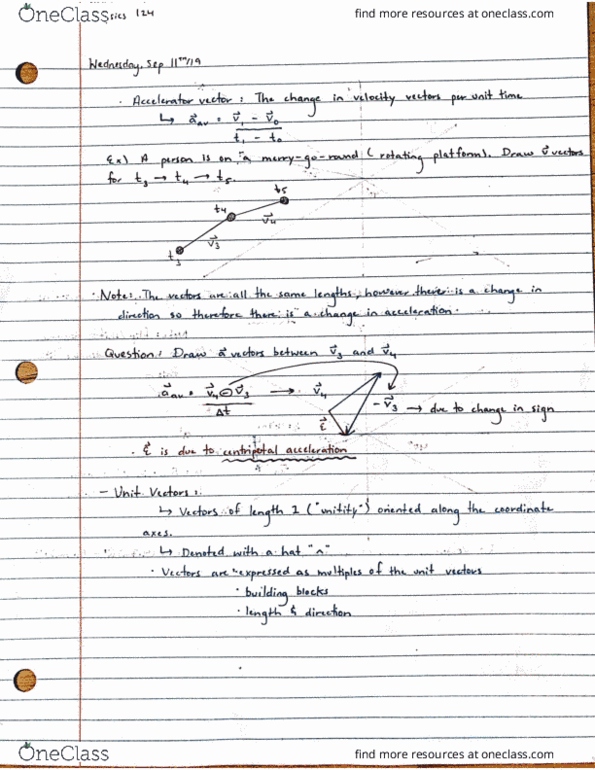 OneClass
sics 124
find more resources at oneclass.com
Wednesday, Sep 11th/19
· Accelerator vector: The change in velocity vectors per unit time
↳ a⃗av = v⃗₁ - v⃗₀
t₁ - t₀
Ex) A person is on a merry-go-round (rotating platform). Draw v⃗ vectors
for t₃ → t₄ → t₅
t₅
t₄
v⃗₄
v⃗₃
t₃
· Note: The vectors are all the same lengths, however there is a change in
direction so therefore there is a change in acceleration.
Question: Draw a⃗ vectors between v⃗₃ and v⃗₄
a⃗av = v⃗₄ - v⃗₃ → v⃗₄
Δt
-v⃗₃ → due to change in sign
ε⃗
· ε⃗ is due to centripetal acceleration
- Unit Vectors:
↳ Vectors of length 1 ("unitity") oriented along the coordinate
axes.
↳ Denoted with a hat "^"
· Vectors are expressed as multiples of the unit vectors
· building blocks
· length & direction
OneClass
find more resources at oneclass.com